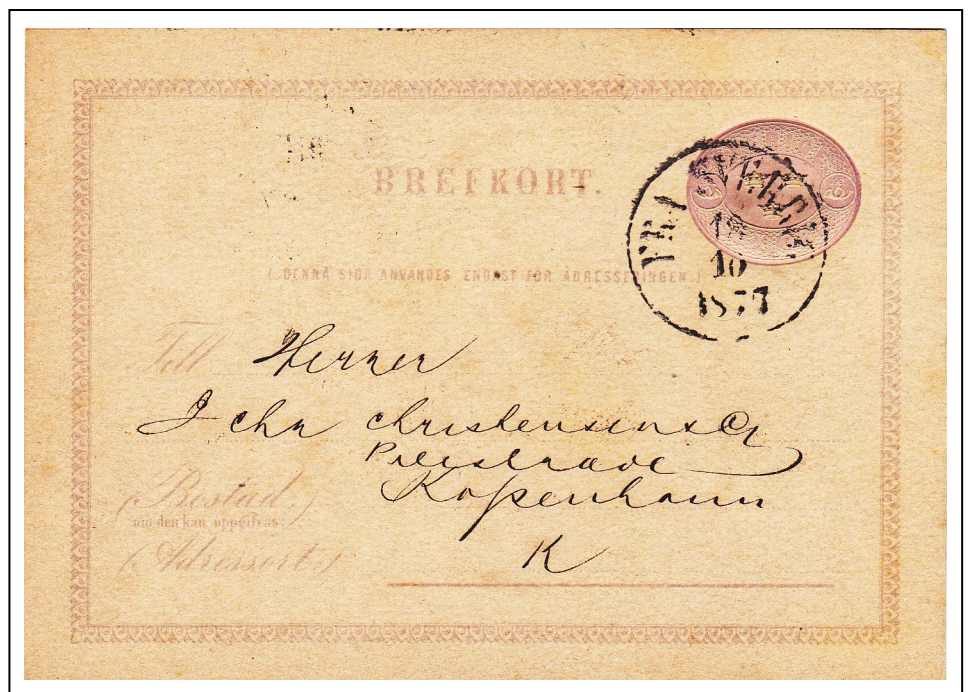 BREFKORT.
(DENNA SIDA ANVÄNDES ENDAST FÖR ADRESSERINGEN.)
FRA SVERIGE
10
1877
Till
Herrer
John Christensens &
Kopenhavn
K
(Bostad)
om den kan uppgifvas
(Adressort)